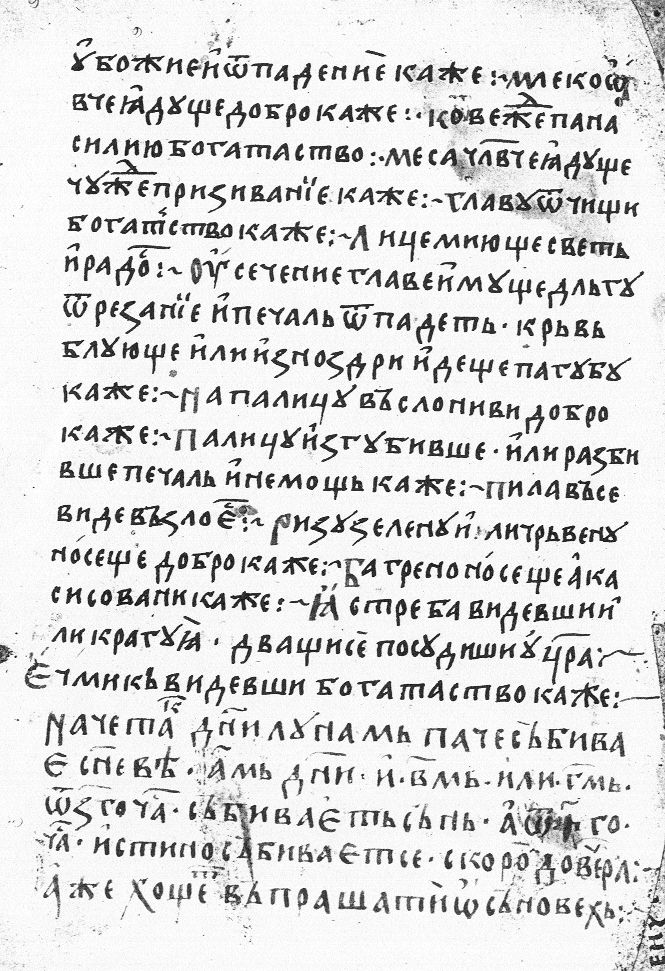 ꙋбожие и ѿпадение каже :~ млеко ѡ
вче ꙗдꙋще добро каже :· кове же пана
силию богатаство :· меса чл҃вче ꙗдꙋще
чꙋже призивание каже :~ главꙋ ѿчищи
богатство каже :~ лице миюще светь
и радо :~ оусечение главе имꙋще дльгꙋ
ѿрезание и печаль ѿпадеть · крьвь
блꙋюще или из ноздри идеще пагꙋбꙋ
каже :~ на палицꙋ въслонив и добро
каже :~ палицꙋ изгꙋбивше · или разби
вше печаль и немощь каже :~ пила въсе
виде въ зло е :~ ризꙋ зеленꙋ или чрьвенꙋ
носеще добро каже :~ багрено носеще а ка
сисовани каже :~ ꙗстреба видевши и
ли крагꙋꙗ · дващи се посꙋдиши ꙋ цр҃а :~
ѥчмикь видевши богатаство каже :
начетак дн҃и лꙋнамь паче събива
ѥ сн҃е вѣ · а҃мь дн҃и · и · в҃мь · или · г҃мь ·
ѿ з҃го ча҃ · събиваѥть сьнь · а ѿ го ·
ча҃ · истино събиваѥтсе · скоро доверл :
аже хоще въпрашати ѡ сьновехь :
ѥнꙋ